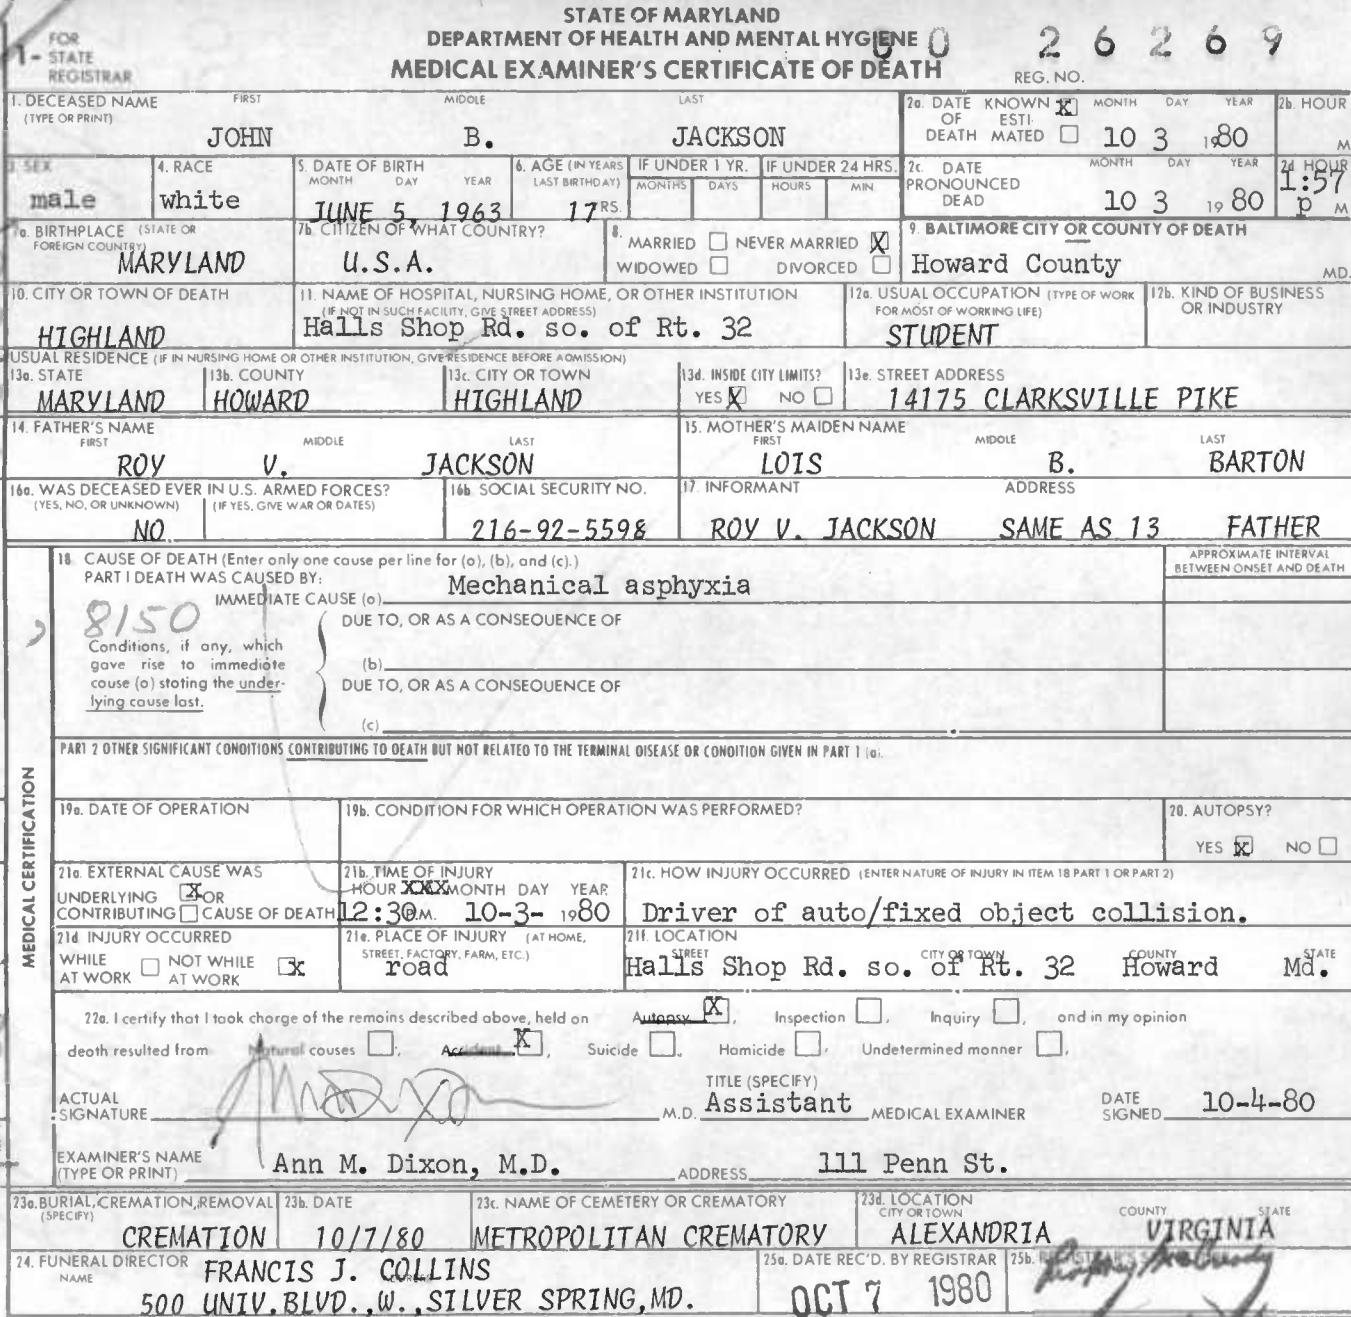 STATE OF MARYLAND
DEPARTMENT OF HEALTH AND MENTAL HYGIENE
MEDICAL EXAMINER'S CERTIFICATE OF DEATH
1- FOR STATE REGISTRAR
REG. NO. 80 26269
1. DECEASED NAME (TYPE OR PRINT) FIRST MIDDLE LAST
JOHN B. JACKSON
2a. DATE OF DEATH KNOWN X ESTIMATED MONTH DAY YEAR
10 3 1980
2b. HOUR M
3. SEX
male
4. RACE
white
5. DATE OF BIRTH MONTH DAY YEAR
JUNE 5, 1963
6. AGE (IN YEARS LAST BIRTHDAY)
17 RS.
IF UNDER 1 YR. MONTHS DAYS
IF UNDER 24 HRS. HOURS MIN
2c. DATE PRONOUNCED DEAD MONTH DAY YEAR
10 3 1980
2d HOUR
1:57 p M
7a. BIRTHPLACE (STATE OR FOREIGN COUNTRY)
MARYLAND
7b. CITIZEN OF WHAT COUNTRY?
U.S.A.
8. MARRIED NEVER MARRIED X
WIDOWED DIVORCED
9. BALTIMORE CITY OR COUNTY OF DEATH
Howard County MD.
10. CITY OR TOWN OF DEATH
HIGHLAND
11. NAME OF HOSPITAL, NURSING HOME, OR OTHER INSTITUTION
(IF NOT IN SUCH FACILITY, GIVE STREET ADDRESS)
Halls Shop Rd. so. of Rt. 32
12a. USUAL OCCUPATION (TYPE OF WORK FOR MOST OF WORKING LIFE)
STUDENT
12b. KIND OF BUSINESS OR INDUSTRY
USUAL RESIDENCE (IF IN NURSING HOME OR OTHER INSTITUTION, GIVE RESIDENCE BEFORE ADMISSION)
13a. STATE
MARYLAND
13b. COUNTY
HOWARD
13c. CITY OR TOWN
HIGHLAND
13d. INSIDE CITY LIMITS?
YES X NO
13e. STREET ADDRESS
14175 CLARKSVILLE PIKE
14. FATHER'S NAME FIRST MIDDLE LAST
ROY V. JACKSON
15. MOTHER'S MAIDEN NAME FIRST MIDDLE LAST
LOIS B. BARTON
16a. WAS DECEASED EVER IN U.S. ARMED FORCES?
(YES, NO, OR UNKNOWN) (IF YES, GIVE WAR OR DATES)
NO
16b. SOCIAL SECURITY NO.
216-92-5598
17. INFORMANT ADDRESS
ROY V. JACKSON SAME AS 13 FATHER
MEDICAL CERTIFICATION
18 CAUSE OF DEATH (Enter only one cause per line for (a), (b), and (c).)
APPROXIMATE INTERVAL BETWEEN ONSET AND DEATH
PART I DEATH WAS CAUSED BY:
IMMEDIATE CAUSE (a) Mechanical asphyxia
8150
DUE TO, OR AS A CONSEQUENCE OF
Conditions, if any, which
gave rise to immediate
cause (a) stating the under-
lying cause last.
(b)
DUE TO, OR AS A CONSEQUENCE OF
(c)
PART 2 OTHER SIGNIFICANT CONDITIONS CONTRIBUTING TO DEATH BUT NOT RELATED TO THE TERMINAL DISEASE OR CONDITION GIVEN IN PART 1 (a).
19a. DATE OF OPERATION
19b. CONDITION FOR WHICH OPERATION WAS PERFORMED?
20. AUTOPSY?
YES X NO
21a. EXTERNAL CAUSE WAS
UNDERLYING X OR
CONTRIBUTING CAUSE OF DEATH
21b. TIME OF INJURY
HOUR XXX MONTH DAY YEAR
12:30 P.M. 10-3- 1980
21c. HOW INJURY OCCURRED (ENTER NATURE OF INJURY IN ITEM 18 PART 1 OR PART 2)
Driver of auto/fixed object collision.
21d INJURY OCCURRED
WHILE AT WORK NOT WHILE AT WORK X
21e. PLACE OF INJURY (AT HOME, STREET, FACTORY, FARM, ETC.)
road
21f. LOCATION STREET CITY OR TOWN COUNTY STATE
Halls Shop Rd. so. of Rt. 32 Howard Md.
22a. I certify that I took charge of the remains described above, held on Autopsy X, Inspection, Inquiry, and in my opinion
death resulted from Natural causes, Accident X, Suicide, Homicide, Undetermined manner.
ACTUAL SIGNATURE M.D.
TITLE (SPECIFY)
Assistant MEDICAL EXAMINER
DATE SIGNED 10-4-80
EXAMINER'S NAME (TYPE OR PRINT) Ann M. Dixon, M.D. ADDRESS 111 Penn St.
23a. BURIAL, CREMATION, REMOVAL (SPECIFY)
CREMATION
23b. DATE
10/7/80
23c. NAME OF CEMETERY OR CREMATORY
METROPOLITAN CREMATORY
23d. LOCATION CITY OR TOWN COUNTY STATE
ALEXANDRIA VIRGINIA
24. FUNERAL DIRECTOR NAME
FRANCIS J. COLLINS
500 UNIV.BLVD.,W.,SILVER SPRING,MD.
25a. DATE REC'D. BY REGISTRAR
OCT 7 1980
25b. REGISTRAR'S